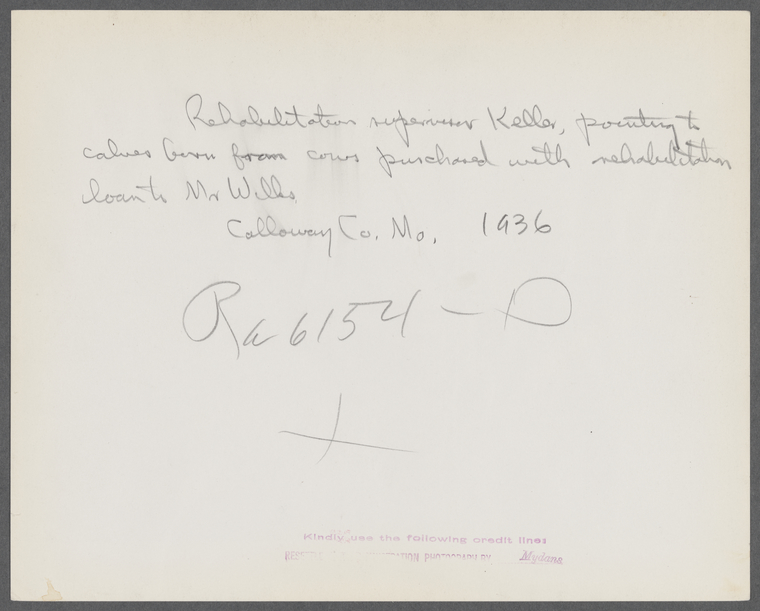 Rehabilitation supervisor Keller, pointing to
calves born from cows purchased with rehabilitation
loan to Mr Wilks,
Calloway Co. Mo. 1936
Ra 6154-D
Kindly use the following credit line:
PHOTOGRAPH BY Mydans